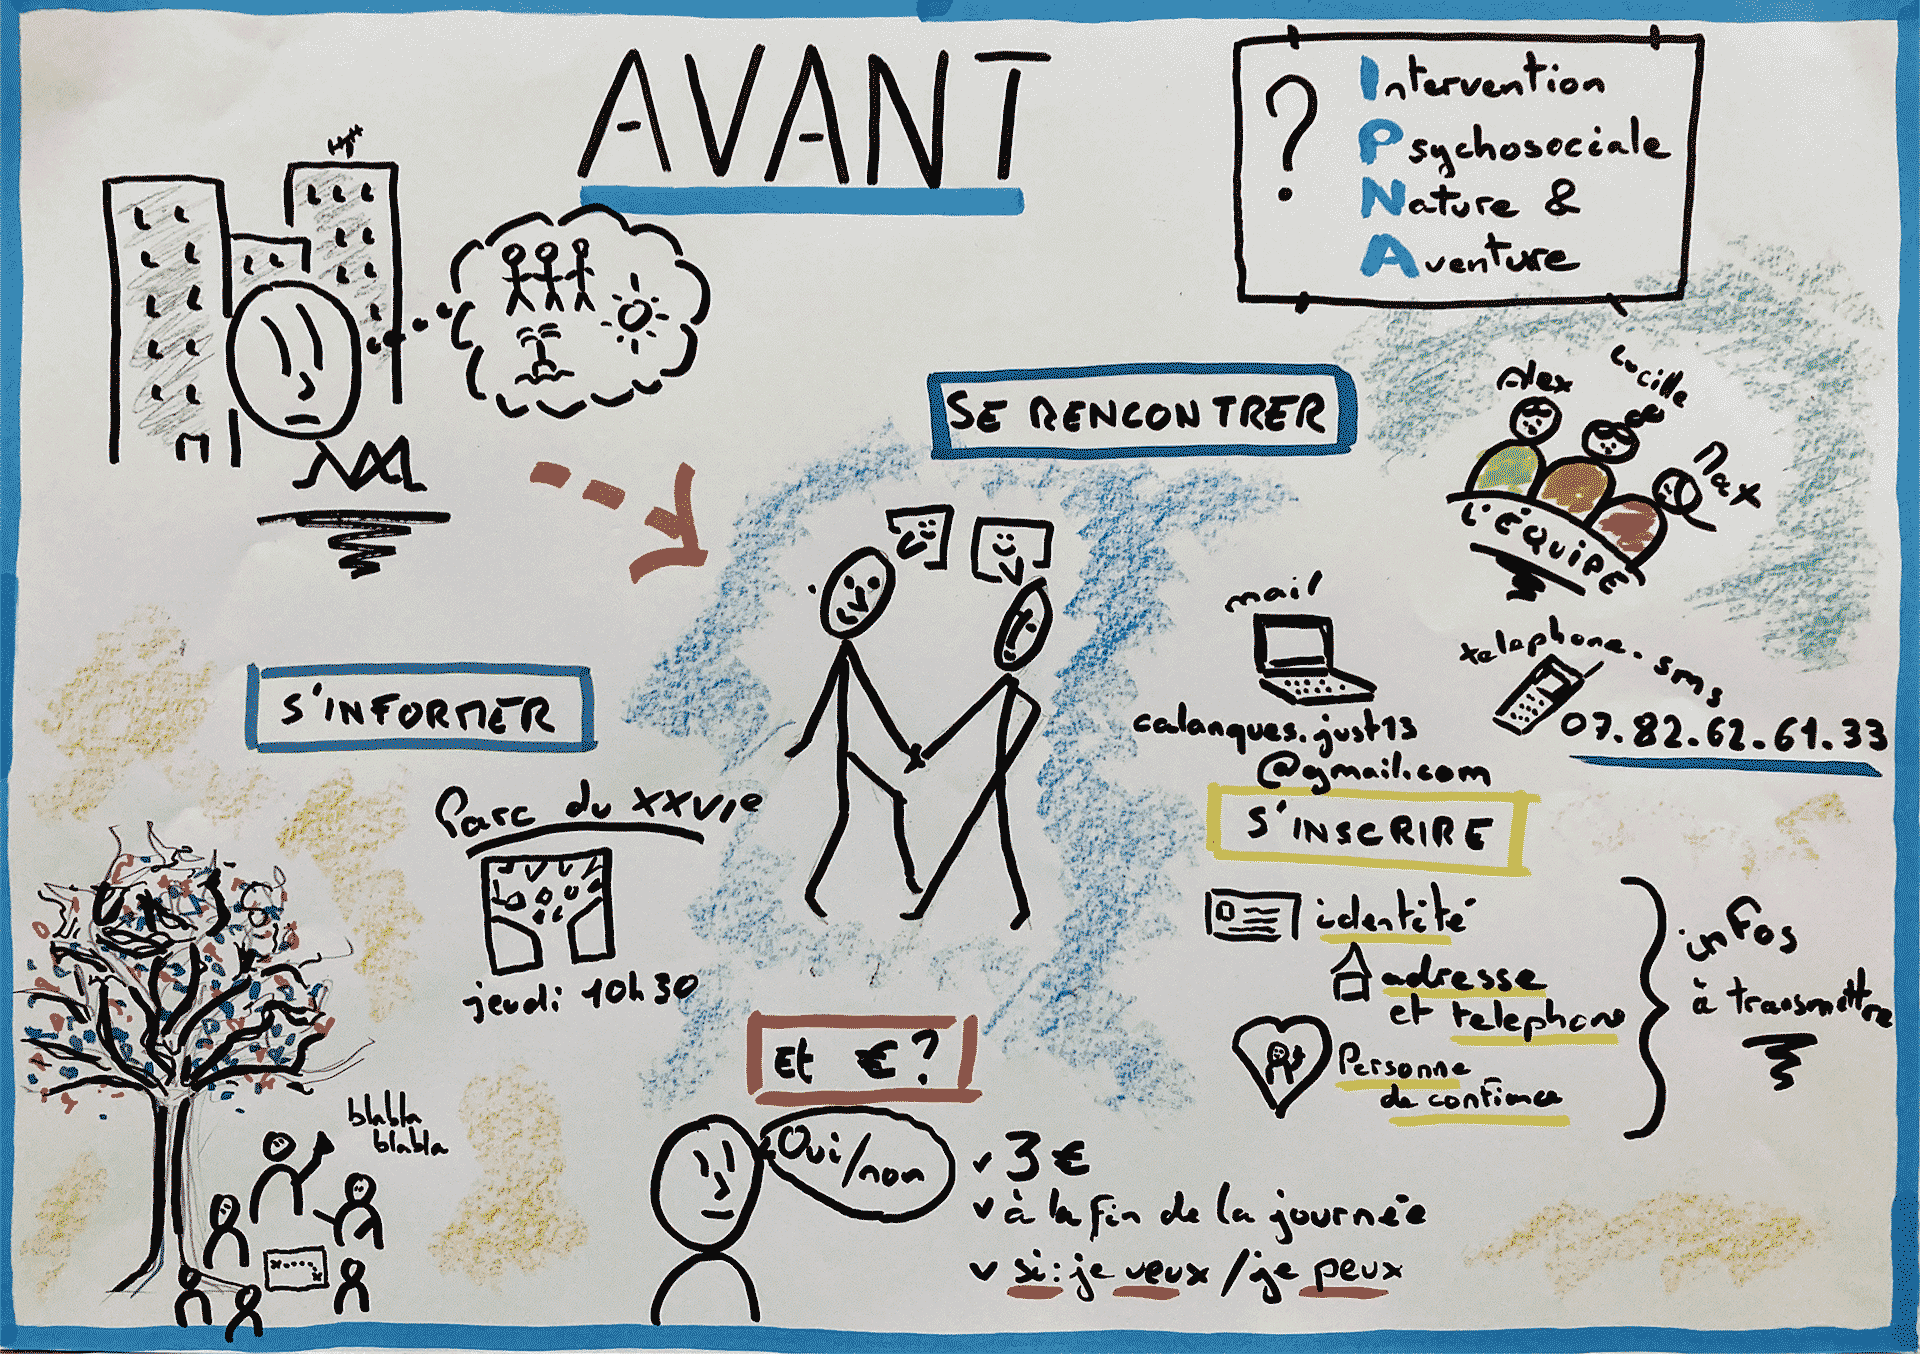 AVANT
?
Intervention
Psychosociale
Nature &
Aventure
SE RENCONTRER
Alex
Lucille
Max
L'ÉQUIPE
mail
calanques.just13
@gmail.com
telephone.sms
07.82.62.61.33
S'INFORMER
Parc du XXVIe
jeudi 10h30
blabla
blabla
S'INSCRIRE
identité
adresse
et telephone
Personne
de confiance
infos
à transmettre
Et € ?
Oui/non
3 €
à la fin de la journée
si: je veux / je peux